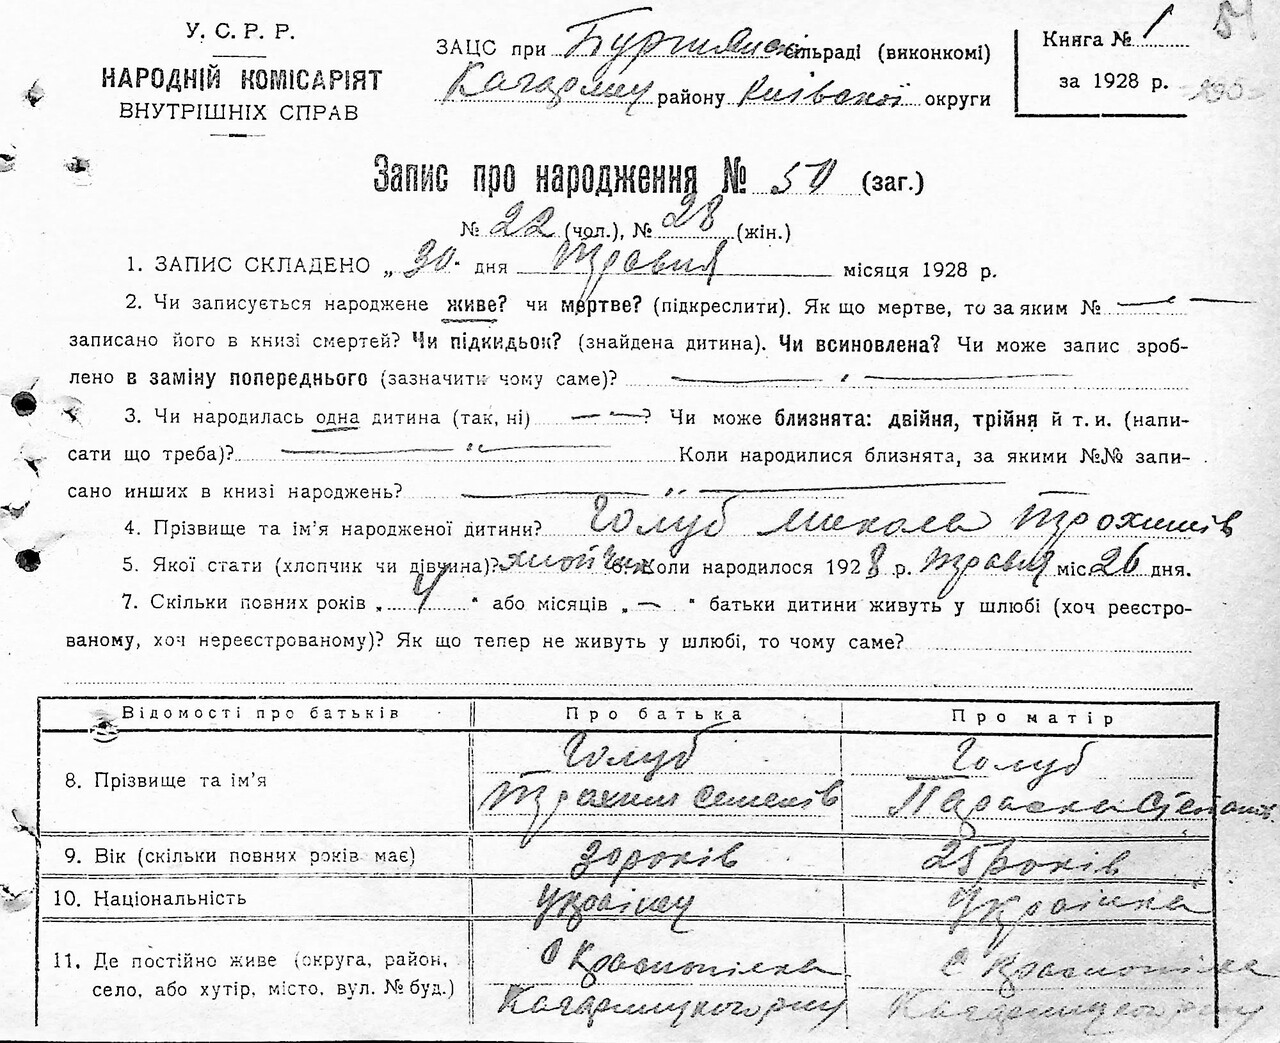 У. С. Р. Р.
НАРОДНІЙ КОМІСАРІЯТ
ВНУТРІШНІХ СПРАВ
ЗАЦС при сільраді (виконкомі)
району Київської округи
Книга № 1
за 1928 р.
Запис про народження № 50 (заг.)
№ 22 (чол.), № 28 (жін.)
1. ЗАПИС СКЛАДЕНО „ 30 дня Травня місяця 1928 р.
2. Чи записується народжене живе? чи мертве? (підкреслити). Як що мертве, то за яким № —
записано його в книзі смертей? Чи підкидьок? (знайдена дитина). Чи всиновлена? Чи може запис зроб-
лено в заміну попереднього (зазначить чому саме)? — „ —
3. Чи народилась одна дитина (так, ні) — „ —? Чи може близнята: двійня, трійня й т. и. (напи-
сати що треба)? — „ — Коли народилися близнята, за якими №№ запи-
сано инших в книзі народжень? — „ —
4. Прізвище та ім'я народженої дитини? Голуб Микола Трохимів
5. Якої стати (хлопчик чи дівчина)? хлопчик 6. Коли народилося 1928 р. Травня міс 26 дня.
7. Скільки повних років „ 4 " або місяців „ — " батьки дитини живуть у шлюбі (хоч реєстро-
ваному, хоч нереєстрованому)? Як що тепер не живуть у шлюбі, то чому саме?
Відомості про батьків Про батька Про матір
8. Прізвище та ім'я Голуб Голуб
Трохим Семенів Параска Степанів
9. Вік (скільки повних років має) 30 років 25 років
10. Національність Українка
11. Де постійно живе (округа, район, с Краснопілка с Краснопілка
село, або хутір, місто, вул. № буд.) Кагарлицького рну Кагарлицького рну